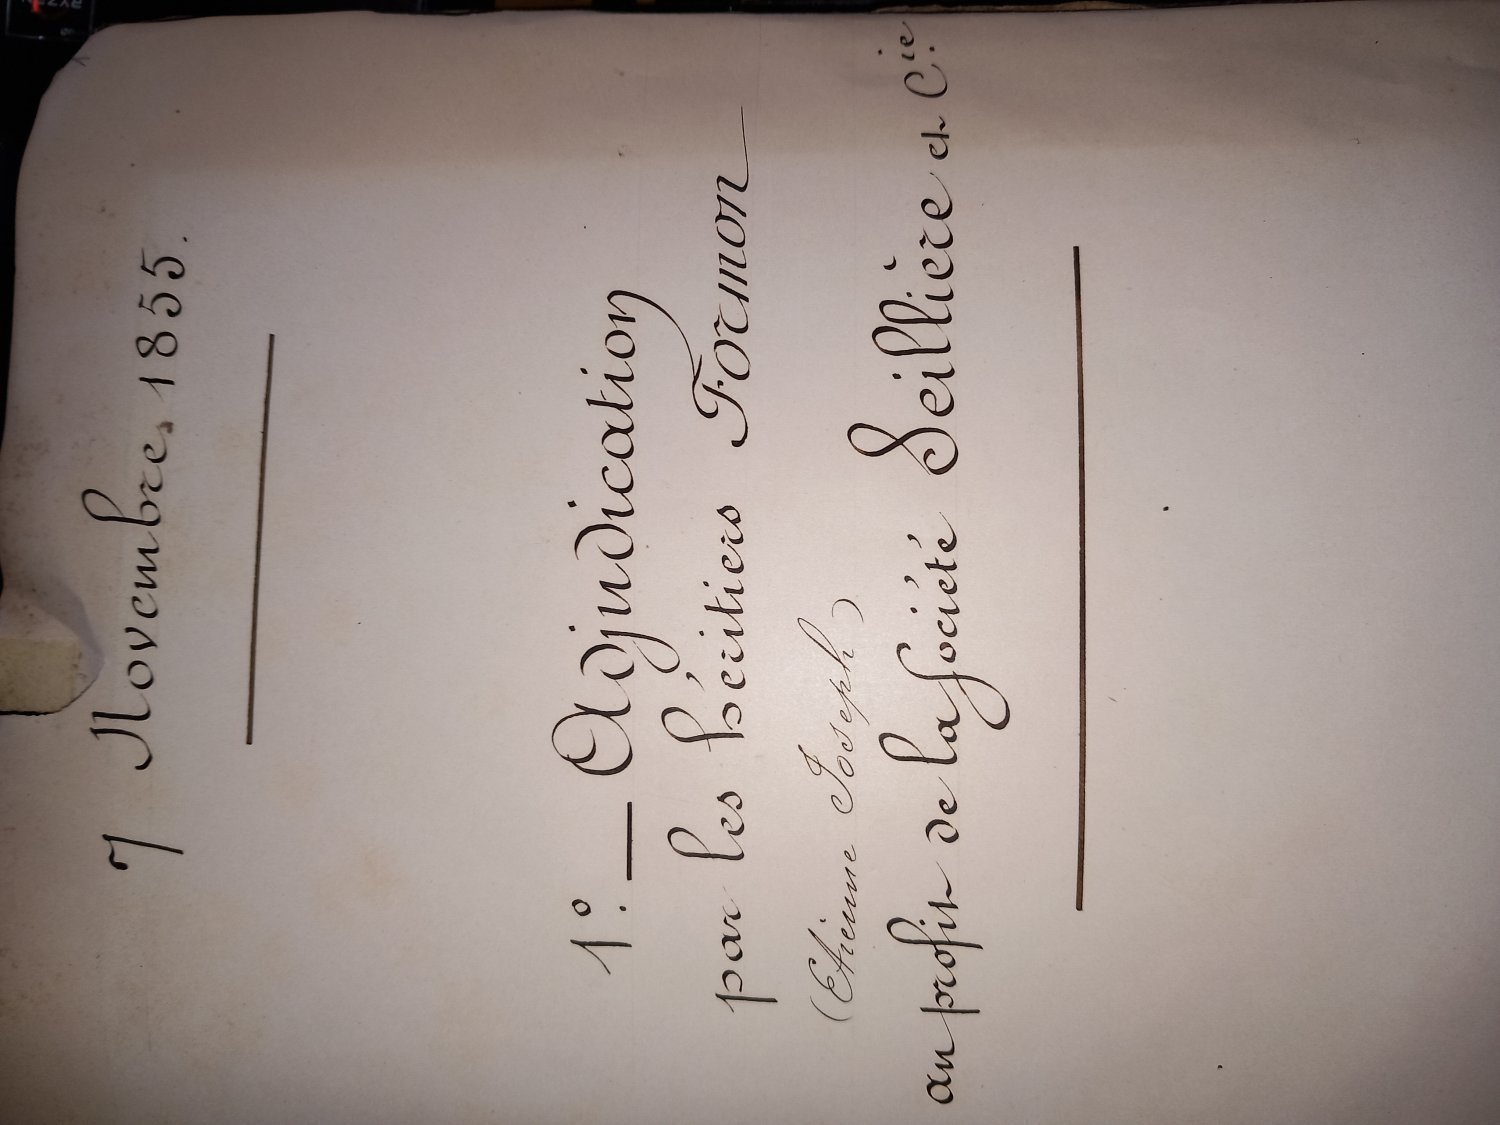 7 Novembre 1855.
1°. — Adjudication
par les héritiers Formon
(Etienne Joseph)
au profit de la Société Seillière et Cie.